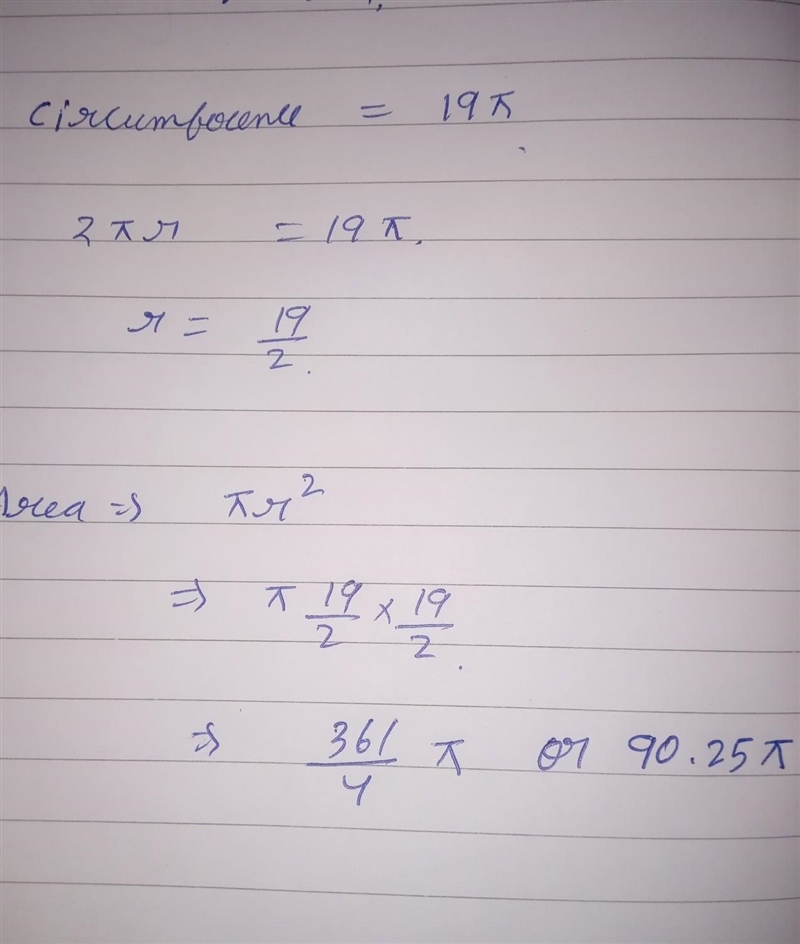 Circumference = 19π
2πr = 19π.
r = 19/2.
Area ⇒ πr²
⇒ π 19/2 × 19/2.
⇒ 361/4 π or 90.25π